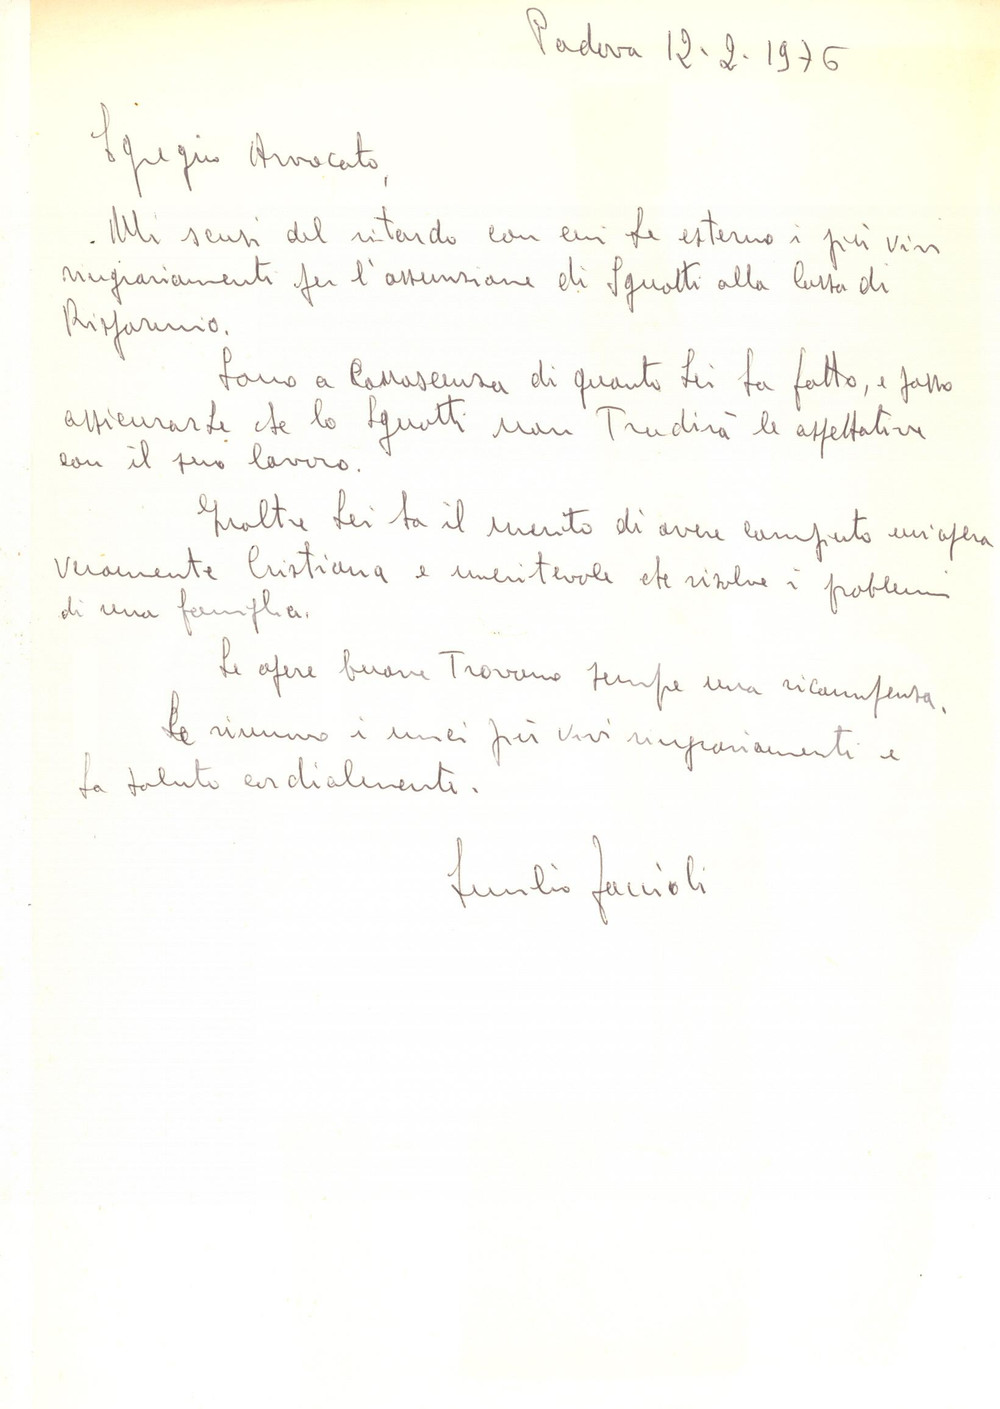 Padova 12.2.1976
Egregio Avvocato,
Mi scusi del ritardo con cui Le esterno i più vivi
ringraziamenti per l'assunzione di Sguotti alla Cassa di
Risparmio.
Sono a conoscenza di quanto Lei ha fatto, e posso
assicurarLe che lo Sguotti non Tradirà le aspettative
con il suo lavoro.
Inoltre Lei ha il merito di avere compiuto un'opera
veramente Cristiana e meritevole che risolve i problemi
di una famiglia.
Le opere buone Trovano sempre una ricompensa.
Le rinnovo i miei più vivi ringraziamenti e
La saluto cordialmente.